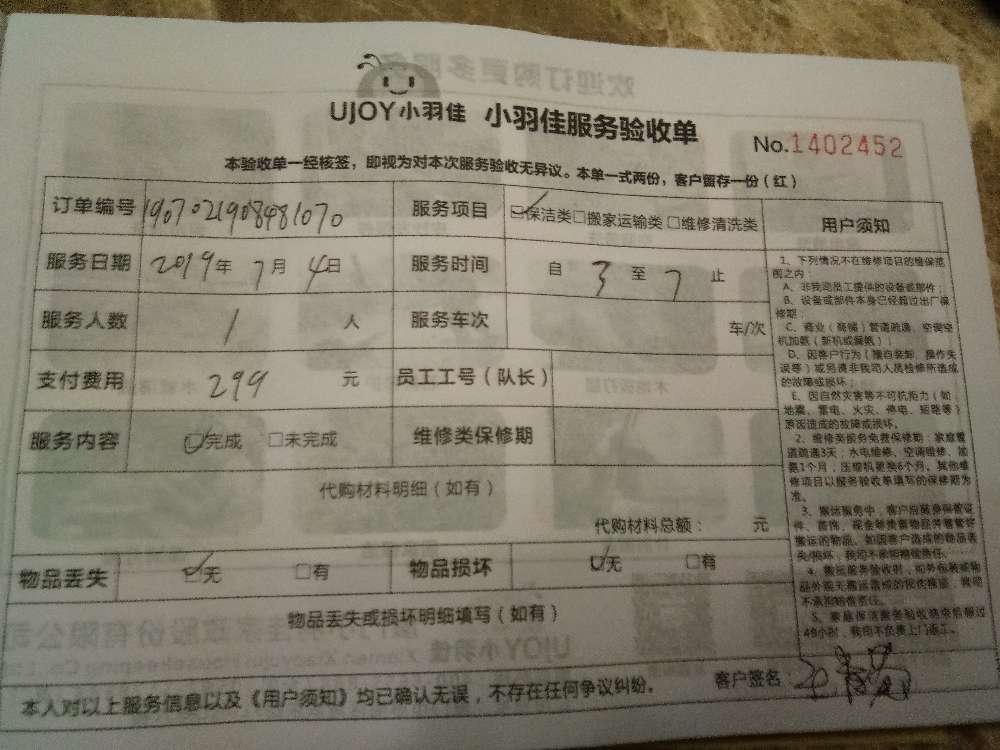 欢迎订购更多服务
UJOY小羽佳 小羽佳服务验收单
No.1402452
本验收单一经核签，即视为对本次服务验收无异议。本单一式两份，客户留存一份（红）
订单编号 1907021908481070 服务项目 ☑保洁类□搬家运输类□维修清洗类
服务日期 2019年7月4日 服务时间 自 3 至 7 止
服务人数 1 人 服务车次 车/次
支付费用 299 元 员工工号（队长）
服务内容 ☑完成 □未完成 维修类保修期
代购材料明细（如有）
代购材料总额： 元
物品丢失 ☑无 □有 物品损坏 ☑无 □有
物品丢失或损坏明细填写（如有）
本人对以上服务信息以及《用户须知》均已确认无误，不存在任何争议纠纷。
客户签名：
用户须知
1、下列情况不在维修项目的维保范
围之内：
A、非我司员工提供的设备或部件；
B、设备或部件本身已经超过出厂保
修期；
C、商业（商铺）管道疏通、空调空
机加氨（新机或漏氨）；
D、因客户行为（擅自装卸、操作失
误等）或另请非我司人员检修所造成
的故障或损坏；
E、因自然灾害等不可抗拒力（如
地震、雷电、火灾、停电、短路等）
原因造成的故障或损坏。
2、维修类服务免费保修期：家庭管
道疏通3天；水电维修、空调维修、加
氨1个月；压缩机更换6个月。其他维
修项目以服务验收单填写的保修期为
准。
3、搬运服务中，客户应随身保管证
件、首饰、现金等贵重物品并看管好
搬运的物品。如因客户造成的物品丢
失/损坏，我司不承担赔偿责任。
4、搬运服务验收时，如外包装或物
品外观无搬运造成的我伤痕迹，我司
不承担赔偿责任。
5、家庭保洁服务验收结束后超过
48小时，我司不负责上门返工。